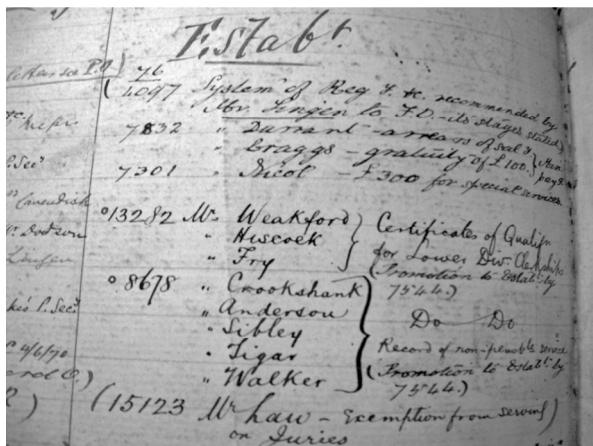 Estabt.
76
(4097 System of Reg & &c. recommended by
Mr. Lingen to F.D. - its stages stated)
7832 " Durrant - arrears of sal
" Craggs - gratuity of £100.
7301 " Nicol - £300 for special services
P.Secy
Cavendish
°13282 Mr. Weakford
" Hiscock
" Fry
Certificates of Qualifn
for Lower Div. Clerkships
(Promotion to Estabt. by
7544.)
Dodson
Lingen
°8678 " Crookshank
" Anderson
" Sibley
" Tigar
" Walker
Do Do
Record of non-pensble service
(Promotion to Estabt. by
7544.)
P. Secy
4/6/70
(15123 Mr Law - Exemption from serving)
on Juries